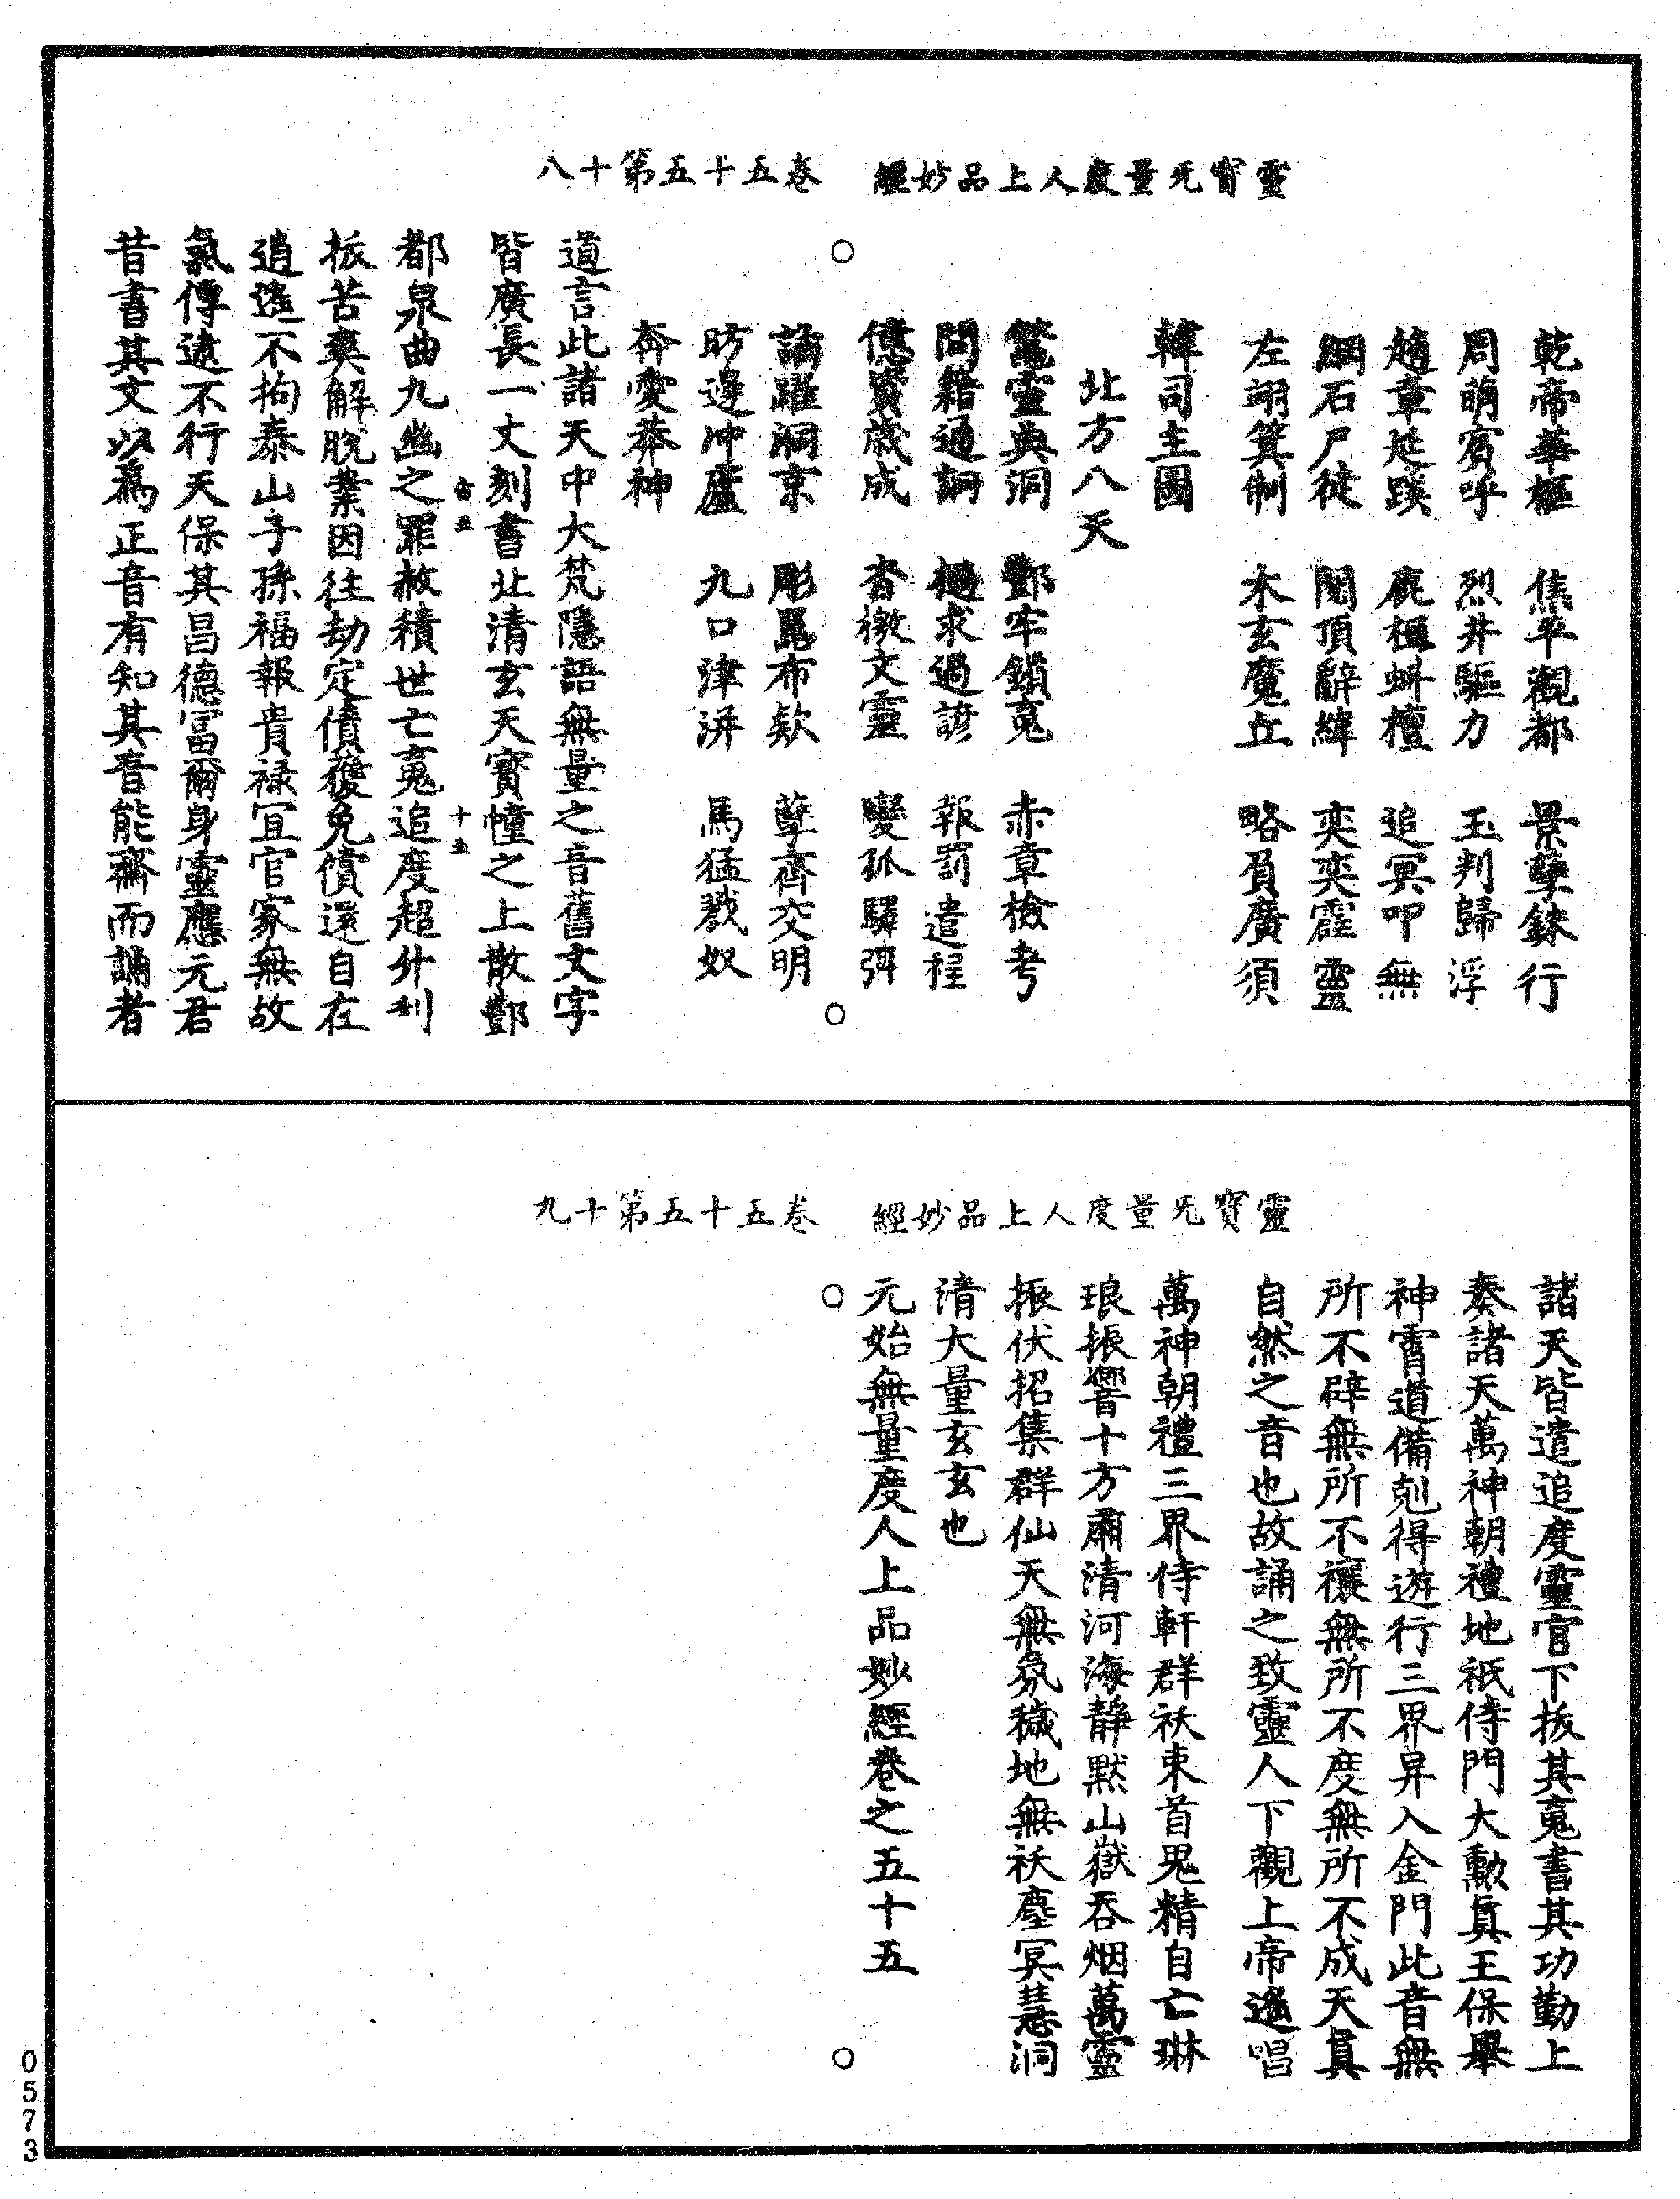 靈寶无量度人上品妙經　卷五十五第十八
乾帝華樞　焦平觀都　景孽銖行
周萌賓呼　烈井驅力　玉判歸浮
趙章延蹊　鹿樞蚪檀　追冥叩無
綱石尸徒　閱頂辭緯　奕奕霳靈
左翊箕制　木玄魔丘　略負廣須
韓司主圖
北方八天
靈典洞　酆牢鎖䰟　赤章檢考
問籍通詗　撾求過諺　報罰遣程
億寶歲成　杳檄文靈　變孤驛弭
誦躍洞京　彫毘布欻　孽齊交明
昉邊冲廬　九口津洴　馬猛戮奴
奔愛莽神
道言此諸天中大梵隱語無量之音舊文字
皆廣長一丈刻書北清玄天寳幢之上散酆
都泉曲九幽之罪赦積世亡䰟追度超升利
拔苦爽解脫業因往劫定債獲免償還自在
逍遙不拘泰山子孫福報貴祿宜官家無故
氣傳逺不行天保其昌德冨爾身靈應元君
昔書其文以爲正音有知其音能齋而誦者
靈寶无量度人上品妙經　卷五十五第十九
諸天皆遣追度靈官下拔其䰟書其功勤上
奏諸天萬神朝禮地祇侍門大勳真王保舉
神霄道備剋得遊行三界昇入金門此音無
所不辟無所不禳無所不度無所不成天真
自然之音也故誦之致靈人下觀上帝遙唱
萬神朝禮三界侍軒群祅束首鬼精自亡琳
琅振響十方肅清河海靜默山嶽吞烟萬靈
振伏招集群仙天無氛穢地無祅塵冥慧洞
清大量玄玄也
元始無量度人上品妙經卷之五十五
0573